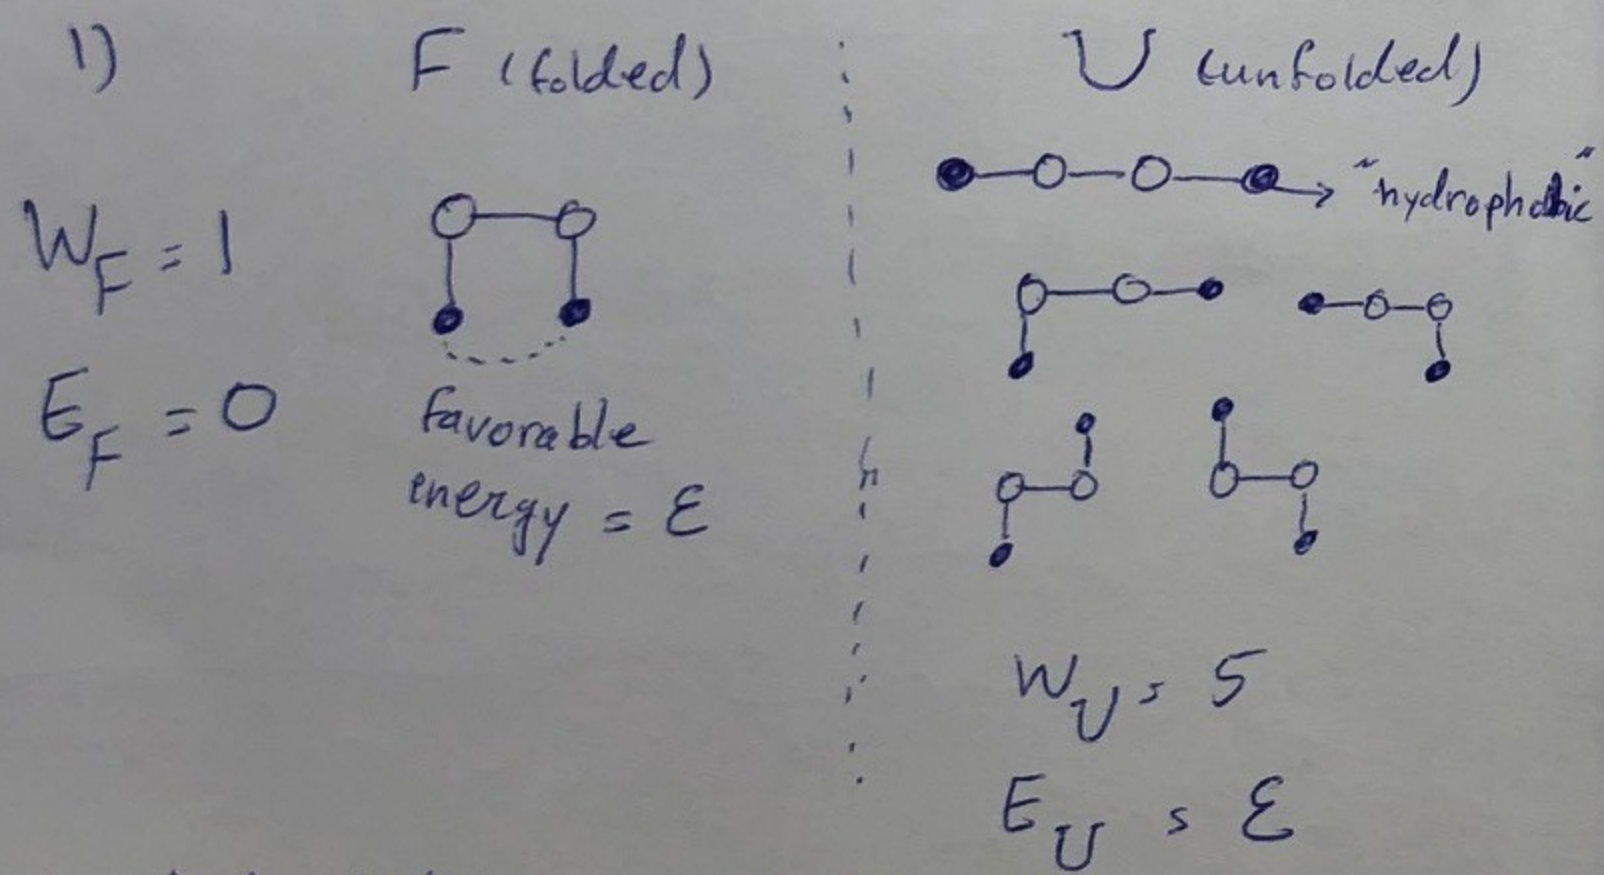 1)
F (folded)
W_F = 1
E_F = 0
favorable
energy = ε
U (unfolded)
"hydrophobic"
W_U = 5
E_U = ε